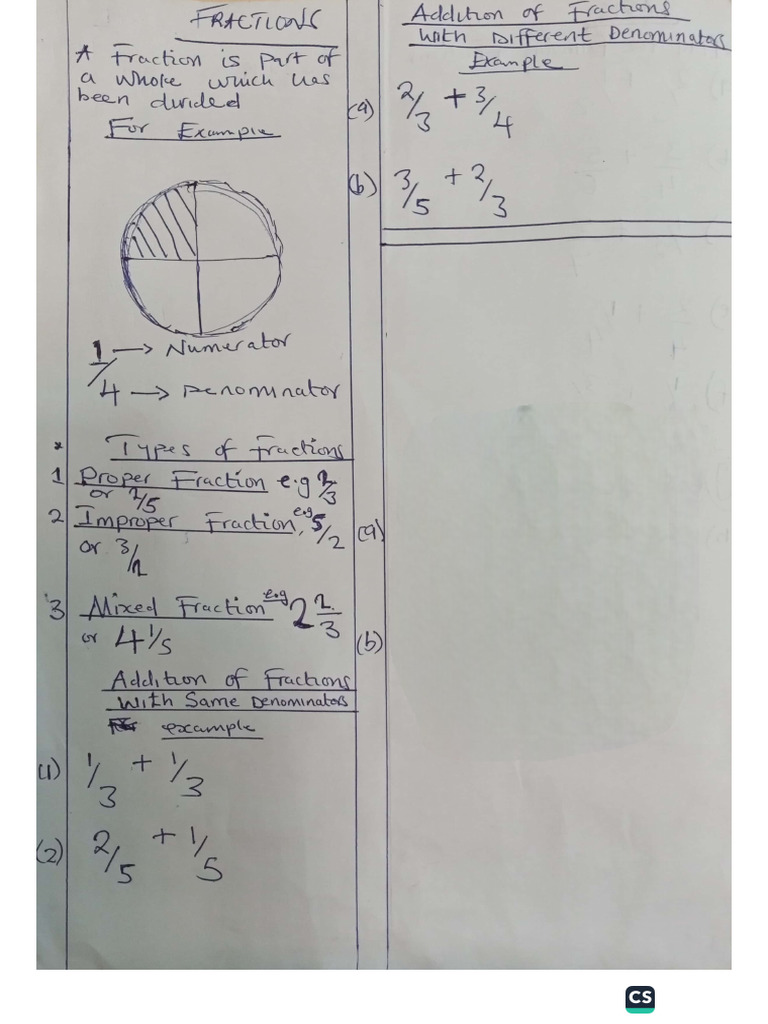 FRACTIONS
A Fraction is part of
a whole which has
been divided
For Example
1 → Numerator
/
4 → Denominator
* Types of fractions
1 Proper Fraction e.g 2/3
or 2/5
2 Improper Fraction, e.g 5/2
or 3/2
3 Mixed Fraction e.g 2 2/3
or 4 1/5
Addition of Fractions
With Same Denominators
example
(1) 1/3 + 1/3
(2) 2/5 + 1/5
Addition of Fractions
With Different Denominators
Example
(a) 2/3 + 3/4
(b) 3/5 + 2/3
(a)
(b)
CS